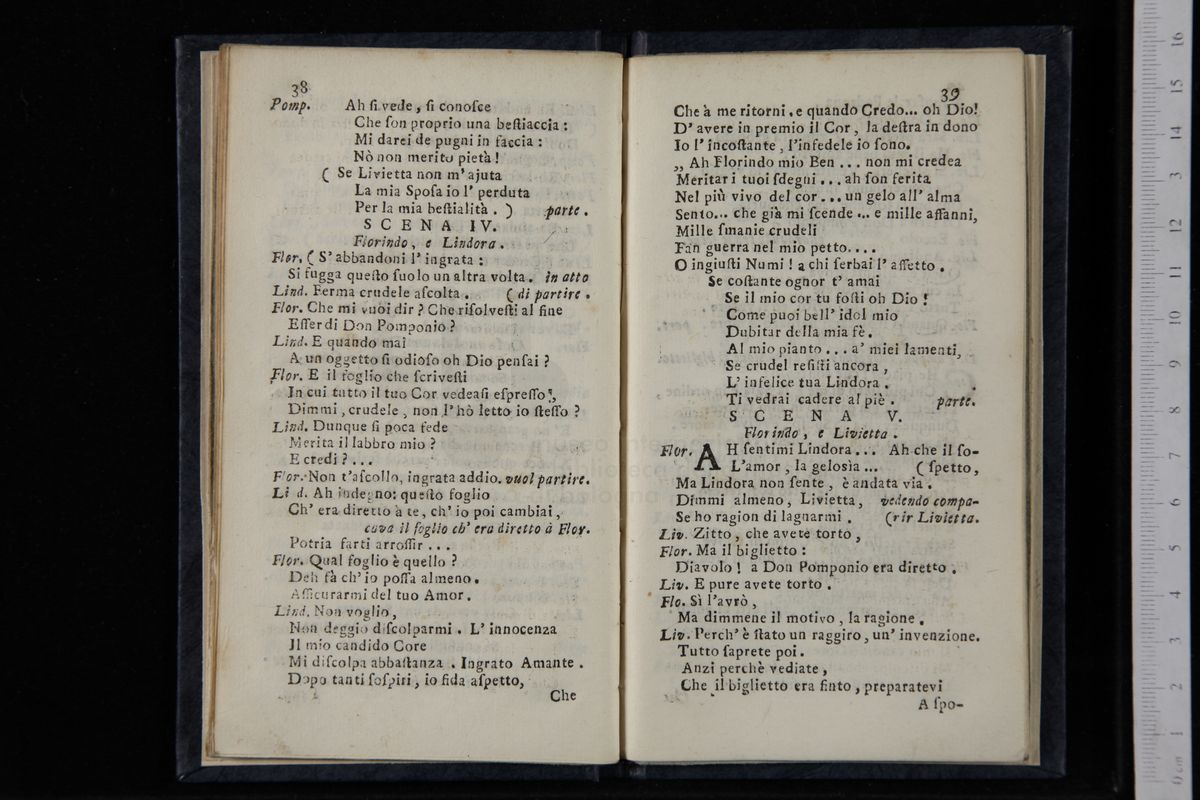 38
Pomp. Ah ſi vede, ſi conoſce
Che ſon proprio una beſtiaccia :
Mi darei de pugni in faccia :
Nò non merito pietà !
( Se Livietta non m' ajuta
La mia Spoſa io l' perduta
Per la mia beſtialità . ) parte .
SCENA IV.
Florindo , e Lindora .
Flor. ( S' abbandoni l' ingrata :
Si fugga queſto ſuolo un altra volta . in atto
Lind. Ferma crudele aſcolta . ( di partire .
Flor. Che mi vuoi dir ? Che riſolveſti al fine
Eſſer di Don Pomponio ?
Lind. E quando mai
A un oggetto ſi odioſo oh Dio penſai ?
Flor. E il foglio che ſcriveſti
In cui tutto il tuo Cor vedeaſi eſpreſſo ,
Dimmi , crudele , non l' hò letto io ſteſſo ?
Lind. Dunque ſi poca fede
Merita il labbro mio ?
E credi ? . . .
Flor. Non t'aſcolto, ingrata addio. vuol partire.
Li d. Ah indegno: queſto foglio
Ch' era diretto à te, ch' io poi cambiai ,
cava il foglio ch' era diretto à Flor.
Potria farti arroſſir . . .
Flor. Qual foglio è quello ?
Deh fà ch' io poſſa almeno.
Aſſicurarmi del tuo Amor.
Lind. Non voglio,
Non deggio diſcolparmi . L' innocenza
Il mio candido Core
Mi diſcolpa abbaſtanza . Ingrato Amante .
Dopo tanti ſoſpiri , io fida aſpetto,
Che
39
Che à me ritorni , e quando Credo... oh Dio!
D' avere in premio il Cor , la deſtra in dono
Io l' incoſtante , l'infedele io ſono.
„ Ah Florindo mio Ben . . . non mi credea
Meritar i tuoi ſdegni . . . ah ſon ferita
Nel più vivo del cor . . . un gelo all' alma
Sento... che già mi ſcende ... e mille affanni,
Mille ſmanie crudeli
Fan guerra nel mio petto. . . .
O ingiuſti Numi ! a chi ſerbai l' affetto .
Se coſtante ognor t' amai
Se il mio cor tu foſti oh Dio !
Come puoi bell' idol mio
Dubitar della mia fè .
Al mio pianto . . . a' miei lamenti,
Se crudel reſiſti ancora ,
L' infelice tua Lindora .
Ti vedrai cadere al piè . parte.
SCENA V.
Florindo , e Livietta .
Flor. AH ſentimi Lindora . . . Ah che il ſo-
L'amor , la gelosìa ... ( ſpetto,
Ma Lindora non ſente , è andata via .
Dimmi almeno, Livietta, vedendo compa-
Se ho ragion di lagnarmi . (rir Livietta.
Liv. Zitto , che avete torto ,
Flor. Ma il biglietto :
Diavolo ! a Don Pomponio era diretto .
Liv. E pure avete torto .
Flo. Sì l'avrò ,
Ma dimmene il motivo , la ragione .
Liv. Perch' è ſtato un raggiro, un' invenzione.
Tutto ſaprete poi .
Anzi perchè vediate ,
Che il biglietto era finto , preparatevi
A ſpo-